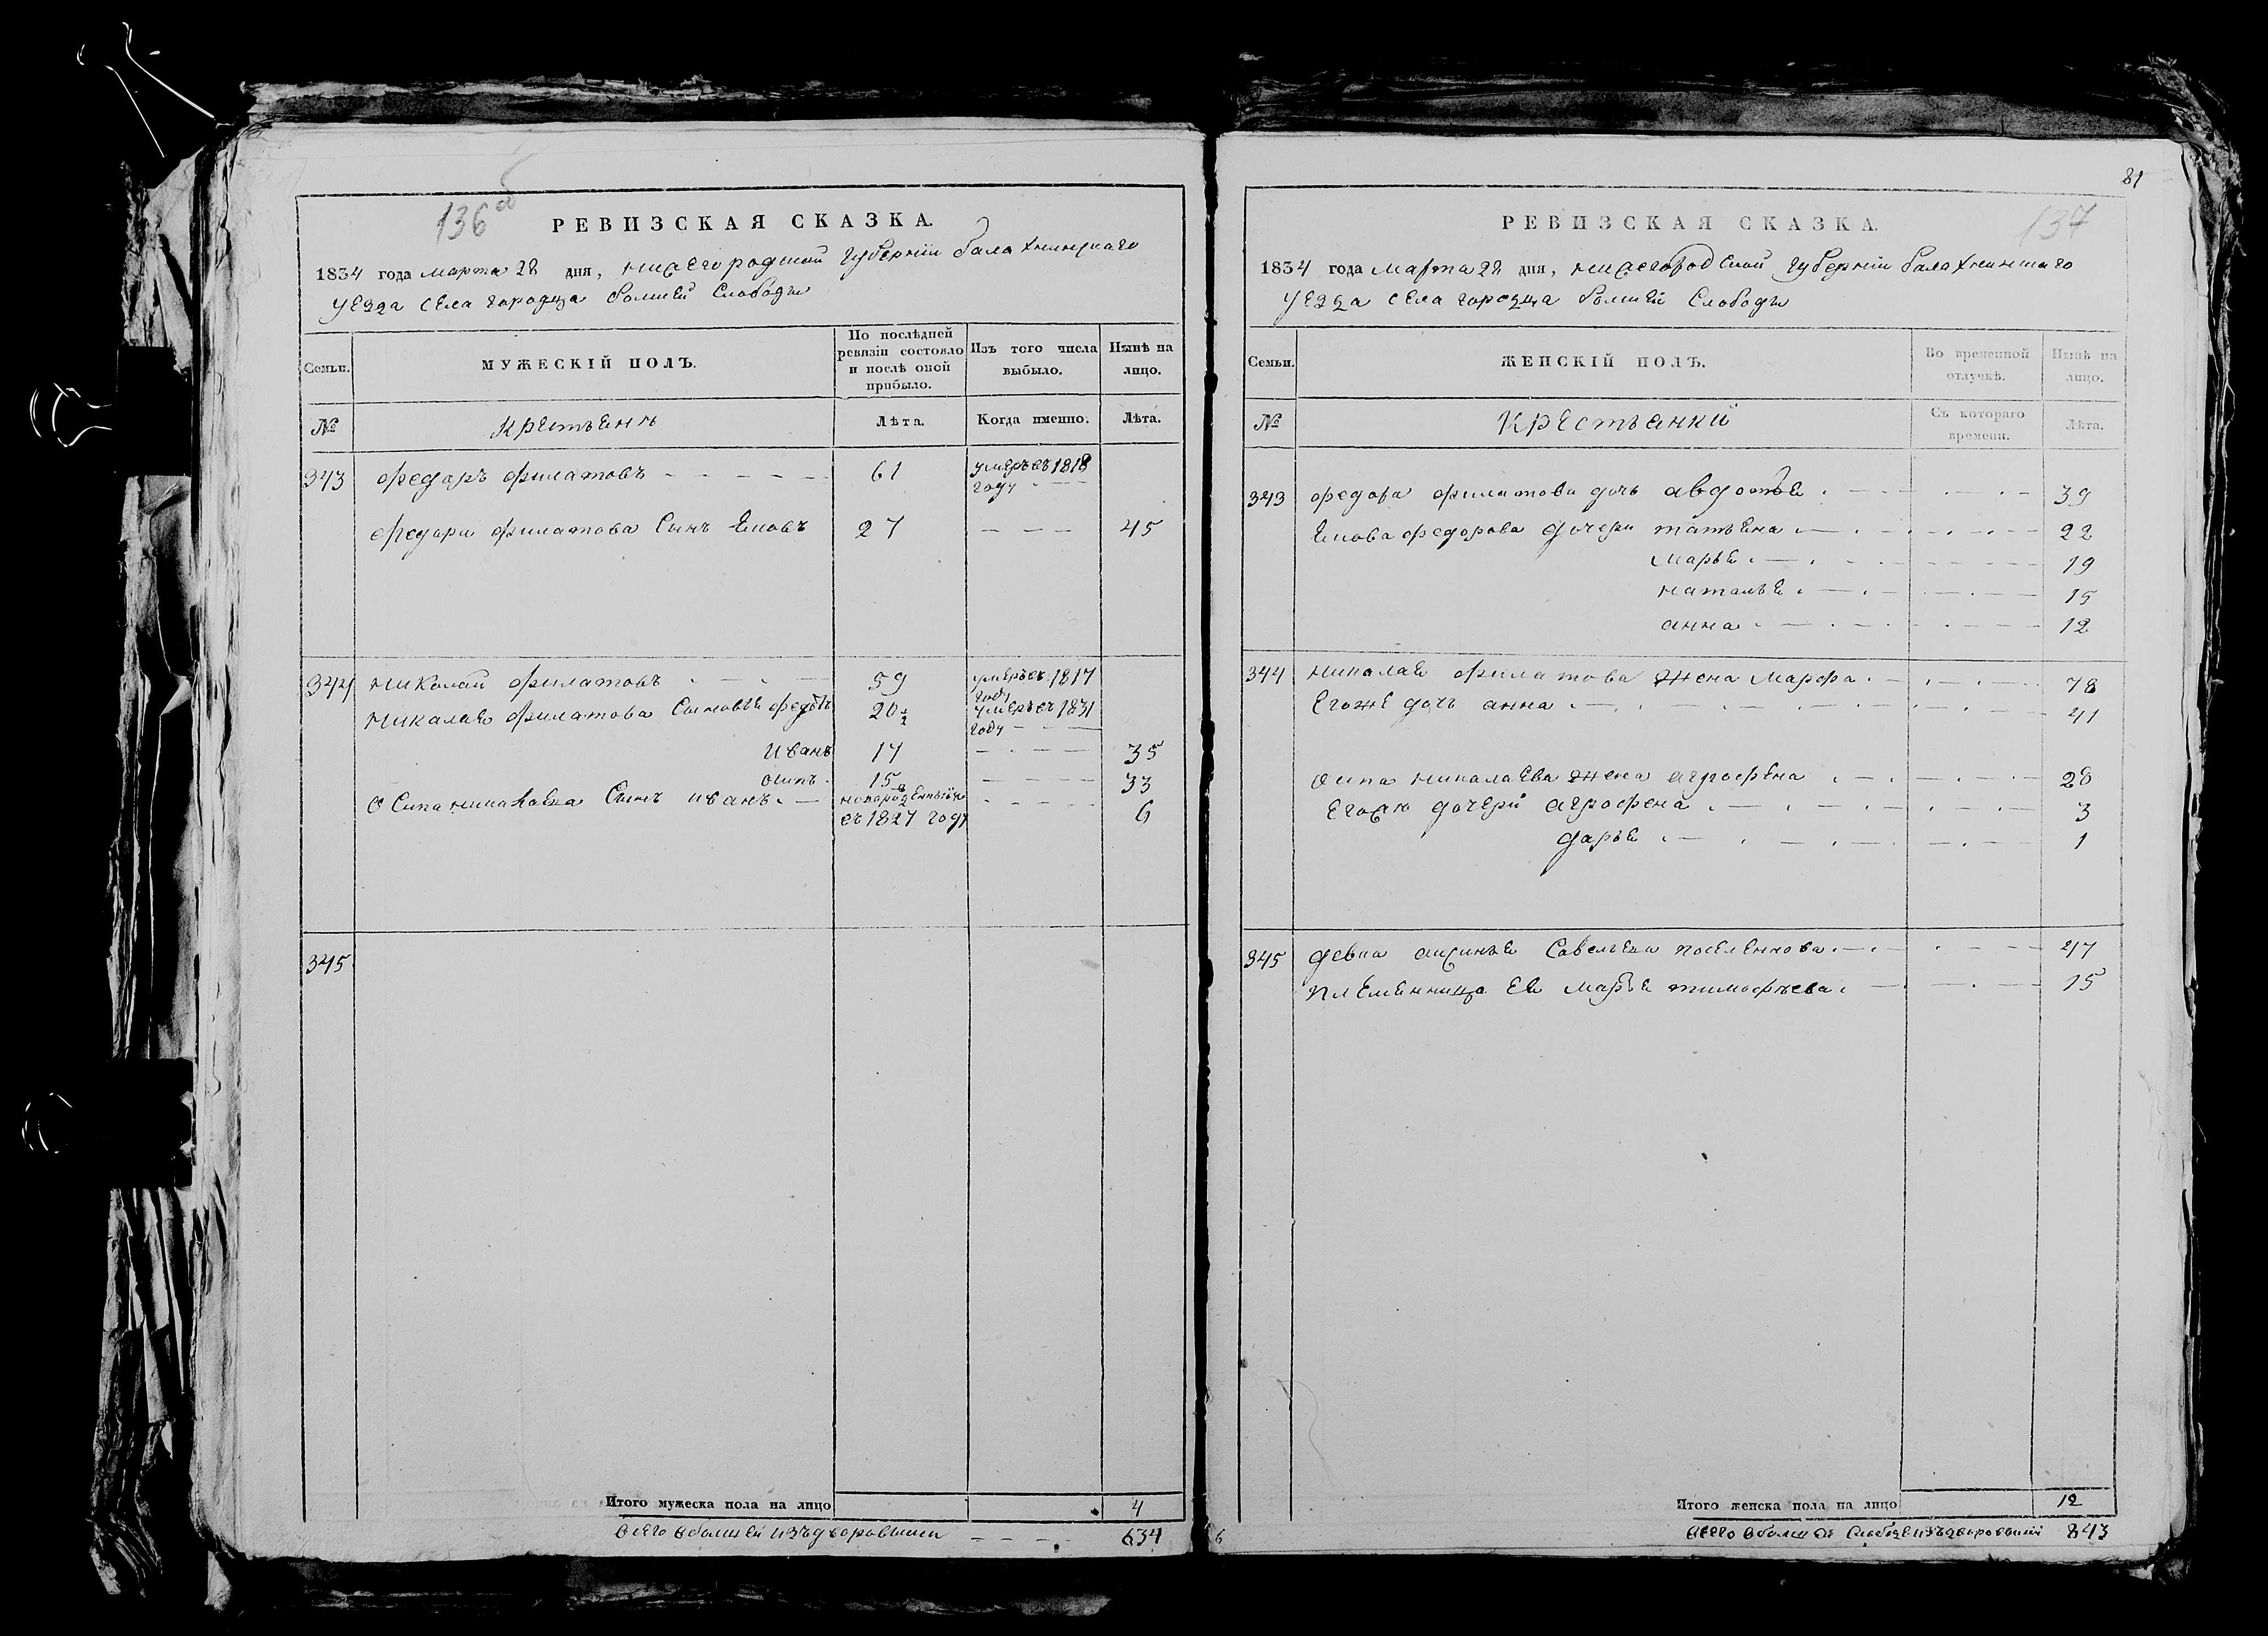 136 об
РЕВИЗСКАЯ СКАЗКА.
1834 года марта 28 дня, нижегородской губернiи балахнинскаго
уезда села городца болшей Слободы
Семьи.
МУЖЕСКIЙ ПОЛЪ.
По послѣдней ревизiи состояло и послѣ оной прибыло.
Изъ того числа выбыло.
Нынѣ на лицо.
№
Крестьянъ
Лѣта.
Когда именно.
Лѣта.
343 федаръ филатовъ 61 умеръ въ 1818
году
федара филатова Сынъ Ековъ 27 45
344 николай филатовъ 59 умеръ въ 1817
году
николаю филатова Сыновье федотъ 20 1/2 умеръ въ 1831
году
иванъ 17 35
осипъ 15 33
Осипа николаева Сынъ иванъ новорожденный
въ 1827 году 6
345
Итого мужеска пола на лицо 4
всего вболшей 634
81
137
РЕВИЗСКАЯ СКАЗКА.
1834 года марта 28 дня, нижегородской губернiи балахнинскаго
уезда села городца болшей Слободы
Семьи.
ЖЕНСКIЙ ПОЛЪ.
Во временной отлучкѣ.
Нынѣ на лицо.
№
Крестьянки
Съ котораго времени.
Лѣта.
343 федора филатова дочь авдотье 39
Екова федорова дочери татьена 22
марье 19
наталье 15
анна 12
344 николае филатова жена марфа 78
Егоже дочь анна 41
осипа николаева жена агрофена 28
Егожъ дочери агрофена 3
дарье 1
345 девка аксинье Савельева поселеннова 47
племенница Ее марье тимофъева 15
Итого женска пола на лицо 12
всего вболшой слободе 843
6